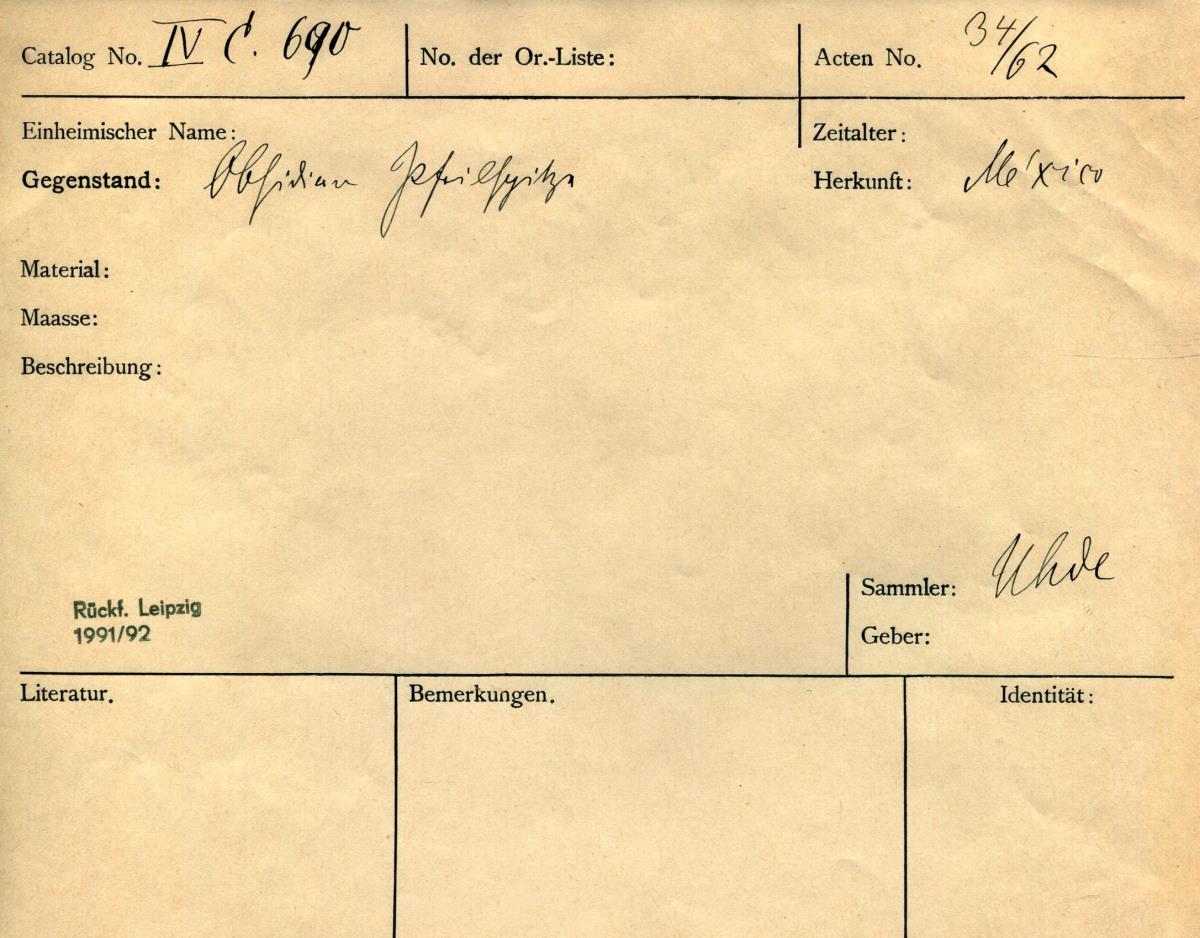 Catalog No. IV C. 690
No. der Or.-Liste:
Acten No. 34/62
Einheimischer Name:
Zeitalter:
Gegenstand: Obsidian Pfeilspitze
Herkunft: México
Material:
Maasse:
Beschreibung:
Sammler: Uhde
Geber:
Rückf. Leipzig
1991/92
Literatur.
Bemerkungen.
Identität: